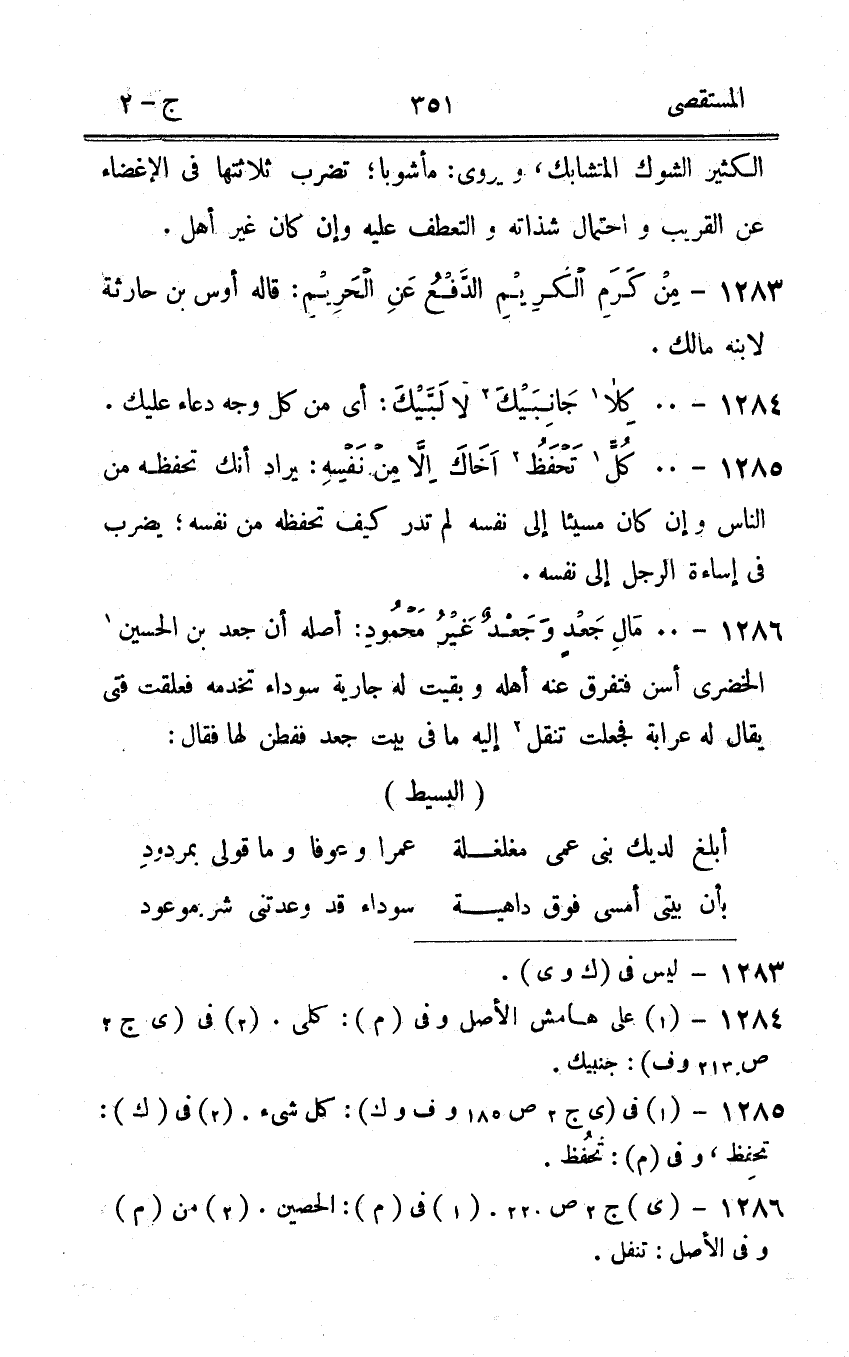 المستقصى ٣٥١ ج – ٢
الكثير الشوك المتشابك، و يروى: مأشوبا؛ تضرب ثلاثتها فى الإغضاء
عن القريب و احتمال شذاته و التعطف عليه وإن كان غير أهل .
١٢٨٣ – مِنْ كَرَمِ ٱلْكَرِيْمِ الدَّفْعُ عَنِ ٱلْحَرِيْمِ: قاله أوس بن حارثة
لابنه مالك .
١٢٨٤ – ٠٠ كِلَا ١ جَانِبَيْكَ ٢ لَا لَبَّيْكَ: أى من كل وجه دعاء عليك .
١٢٨٥ – ٠٠ كُلَّ ١ تَحْفَظُ ٢ اَخَاكَ اِلَّا مِنْ نَفْسِهِ: يراد أنك تحفظه من
الناس و إن كان مسيئا إلى نفسه لم تدر كيف تحفظه من نفسه؛ يضرب
فى إساءة الرجل إلى نفسه .
١٢٨٦ – ٠٠ مَالِ جَعْدٍ وَجَعْدٌ غَيْرُ مَحْمُودِ: أصله أن جعد بن الحسين ١
الخضرى أسن فتفرق عنه أهله و بقيت له جارية سوداء تخدمه فعلقت فتى
يقال له عرابة فجعلت تنقل ٢ إليه ما فى بيت جعد ففطن لها فقال:
( البسيط )
أبلغ لديك بنى عمى مغلغلة عمرا و عوفا و ما قولى بمردودِ
بأن بيتى أمسى فوق داهية سوداء قد وعدتنى شر موعود
١٢٨٣ – ليس فى (ك و ى) .
١٢٨٤ – (١) على هامش الأصل و فى (م): كلى . (٢) فى (ى ج ٢
ص ٢١٣ و ف): جنبيك .
١٢٨٥ – (١) فى (ى ج ٢ ص ١٨٥ و ف و ك): كل شىء . (٢) فى (ك):
تحفِظ، و فى (م): تُحُفظ .
١٢٨٦ – (ى) ج ٢ ص ٢٢٠ . (١) فى (م): الحصين . (٢) من (م)
و فى الأصل: تنفل .